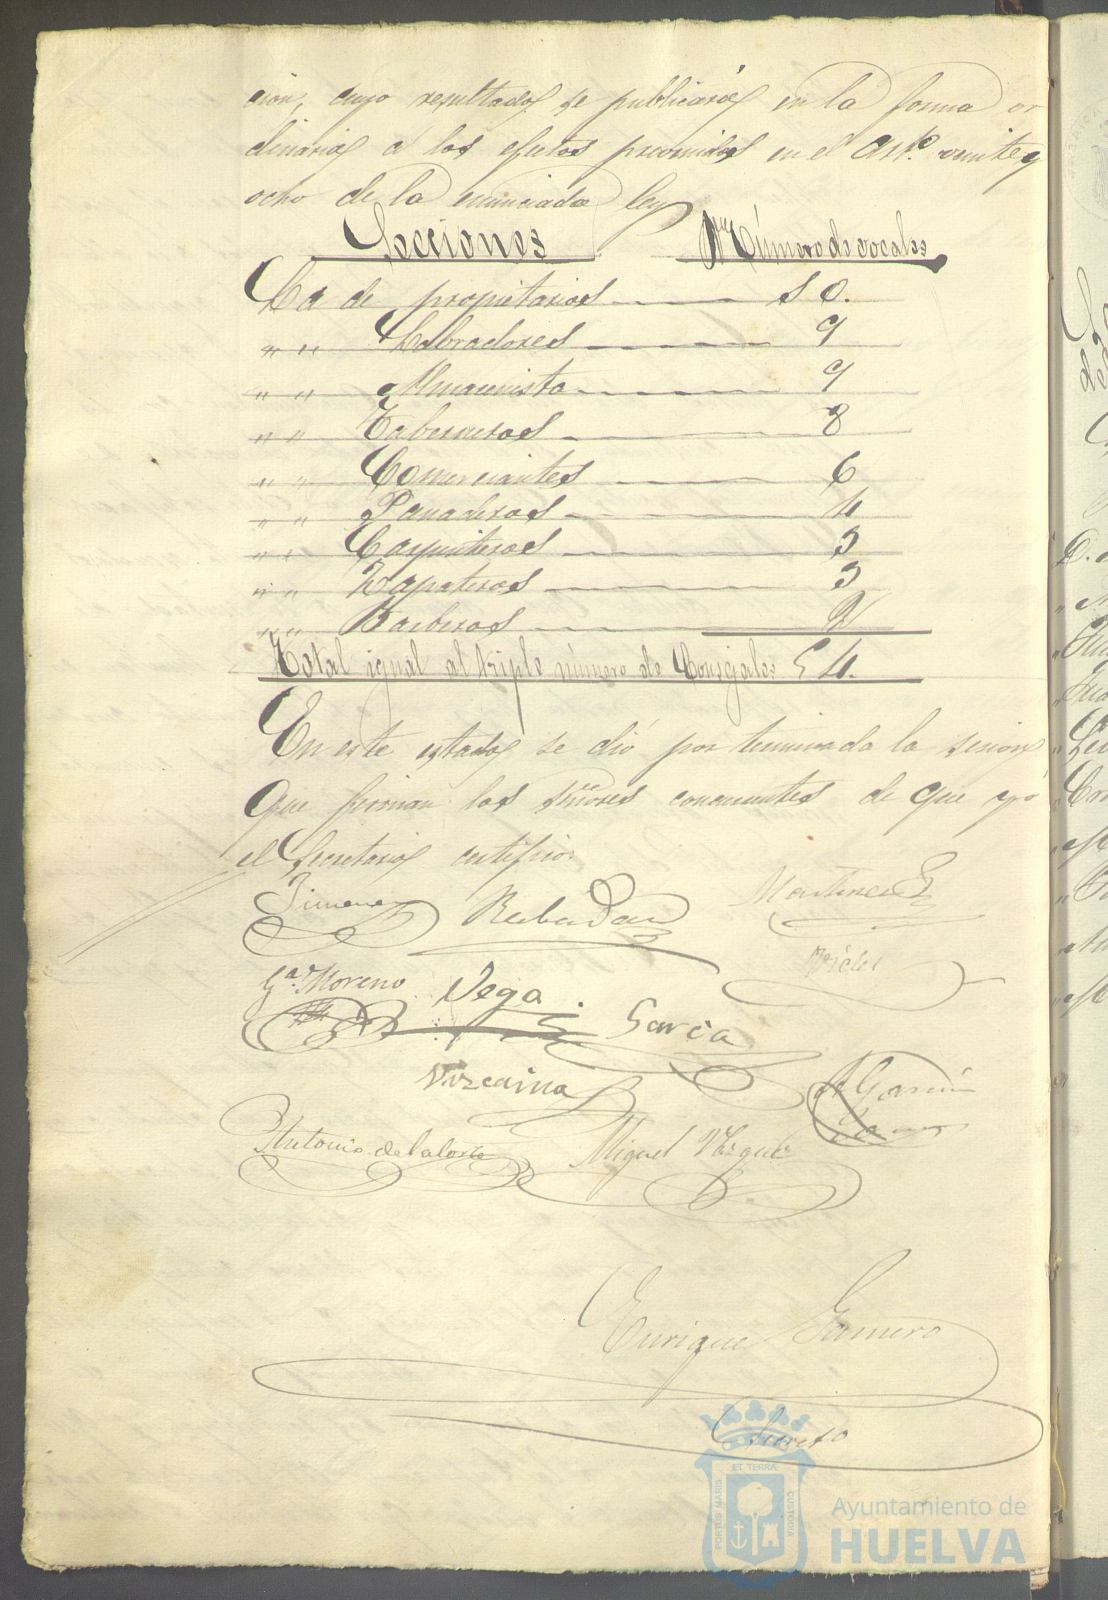 cion, cuyo resultado, se publicará en la forma or
dinaria á los efectos prevenidos en el Artº veinte y
ocho de la enunciada ley
Secciones Número de vocales
La de propietarios 10.
" " Labradores 9
" " Almacenista 9
" " Taberneros 8
" " Comerciantes 6
" " Panaderos 4
" " Carpinteros 3
" " Zapateros 3
" " Barberos 2
Total igual al triple número de Concejales 54.
En este estado se dió por terminada la sesion
que firman los señores concurrentes de que yo
el Secretario certifico.
Jimenez Rabadan Martinez
Gª Moreno Vega Garcia
Vizcaino A. Garcia
Antonio de la Corte Miguel Vazquez
Enrique Gamero
Secreto
PORTUS MARIS ET TERRÆ CUSTODIA
Ayuntamiento de
HUELVA